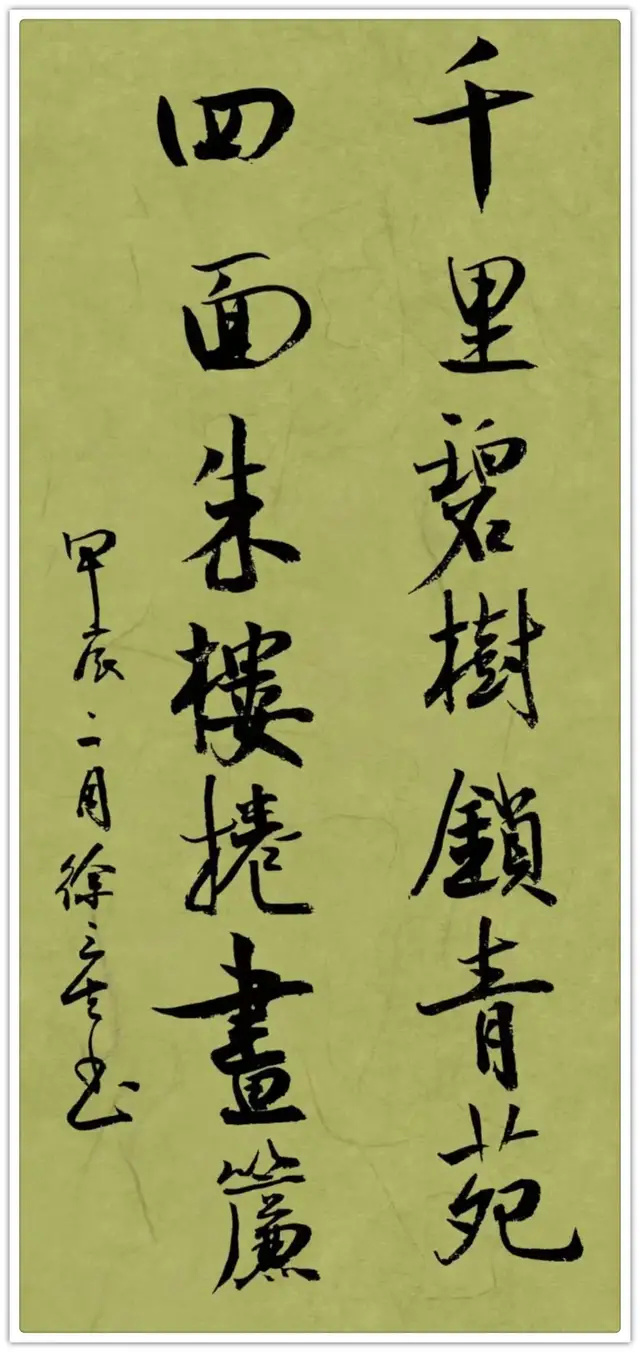 千里碧樹鎖青苑
四面朱樓捲畫簾
甲辰二月徐立書